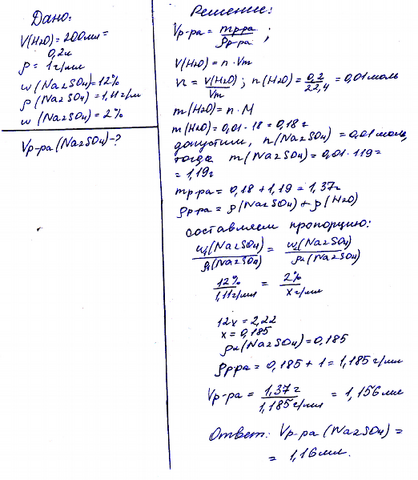 Дано:
V(H2O)=200мл=
0,2л
ρ=1г/мл
w(Na2SO4)=12%
ρ(Na2SO4)=1,11г/мл
w(Na2SO4)=2%
Vр-ра(Na2SO4)-?
Решение:
Vр-ра=mр-ра/ρр-ра;
V(H2O)=n·Vm
n=V(H2O)/Vm; n(H2O)=0,2/22,4=0,01моль
m(H2O)=n·M
m(H2O)=0,01·18=0,18г
допустим, n(Na2SO4)=0,01моль,
тогда m(Na2SO4)=0,01·119=
=1,19г
mр-ра=0,18+1,19=1,37г
ρр-ра=ρ(Na2SO4)+ρ(H2O)
составляем пропорцию:
w1(Na2SO4)/ρ1(Na2SO4)=w2(Na2SO4)/ρ2(Na2SO4)
12%/1,11г/мл=2%/xг/мл
12x=2,22
x=0,185
ρ2(Na2SO4)=0,185
ρр-ра=0,185+1=1,185г/мл
Vр-ра=1,37г/1,185г/мл=1,156мл
Ответ: Vр-ра(Na2SO4)=
=1,16мл.